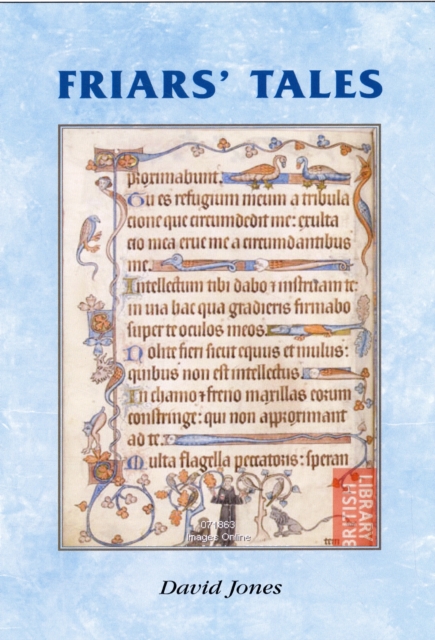 FRIARS' TALES
proximabunt.
Tu es refugium meum a tribula
cione que circumdedit me: exulta
cio mea erue me a circumdantibus
me.
Intellectum tibi dabo ⁊ instruam te:
in uia hac qua gradieris firmabo
super te oculos meos.
Nolite fieri sicut equus et mulus:
quibus non est intellectus.
In chamo ⁊ freno maxillas eorum
constringe: qui non approximant
ad te.
Multa flagella peccatoris: speran
tem
BRITISH
LIBRARY
071863
Images Online
David Jones